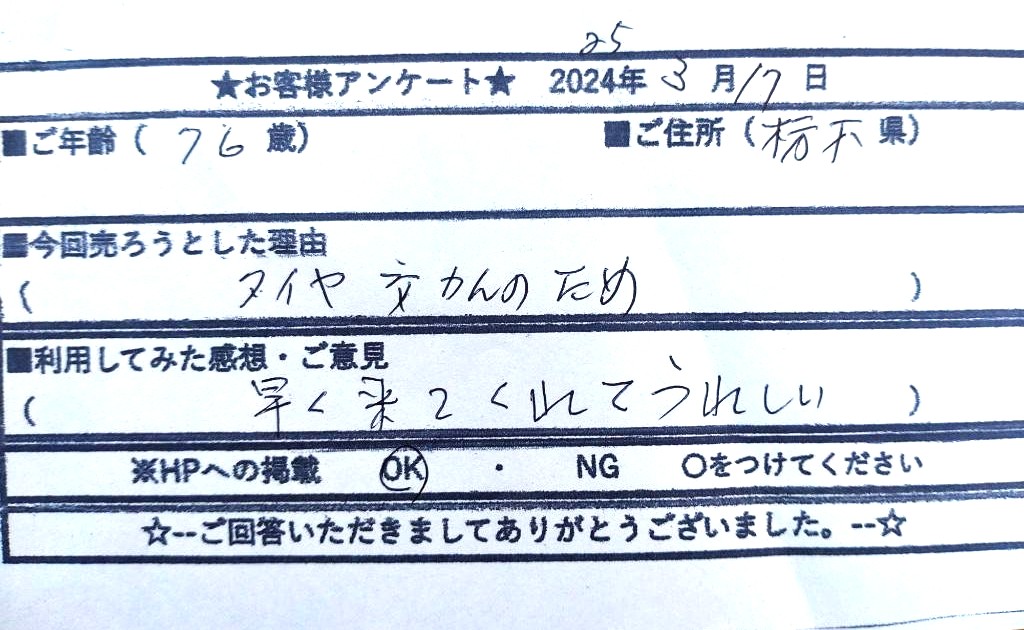 25
★お客様アンケート★ 2024年 3月17日
■ご年齢（ 76 歳） ■ご住所（ 栃木 県）
■今回売ろうとした理由
（ タイヤ交かんのため ）
■利用してみた感想・ご意見
（ 早く来てくれてうれしい ）
※HPへの掲載 OK ・ NG 〇をつけてください
☆--ご回答いただきましてありがとうございました。--☆